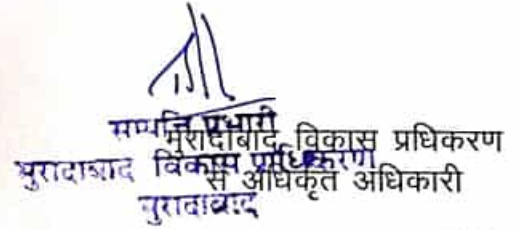 सम्पत्ति प्रभारी
मुरादाबाद विकास प्रधिकरण
मुरादाबाद विकास प्राधिकरण
से अधिकृत अधिकारी
मुरादाबाद